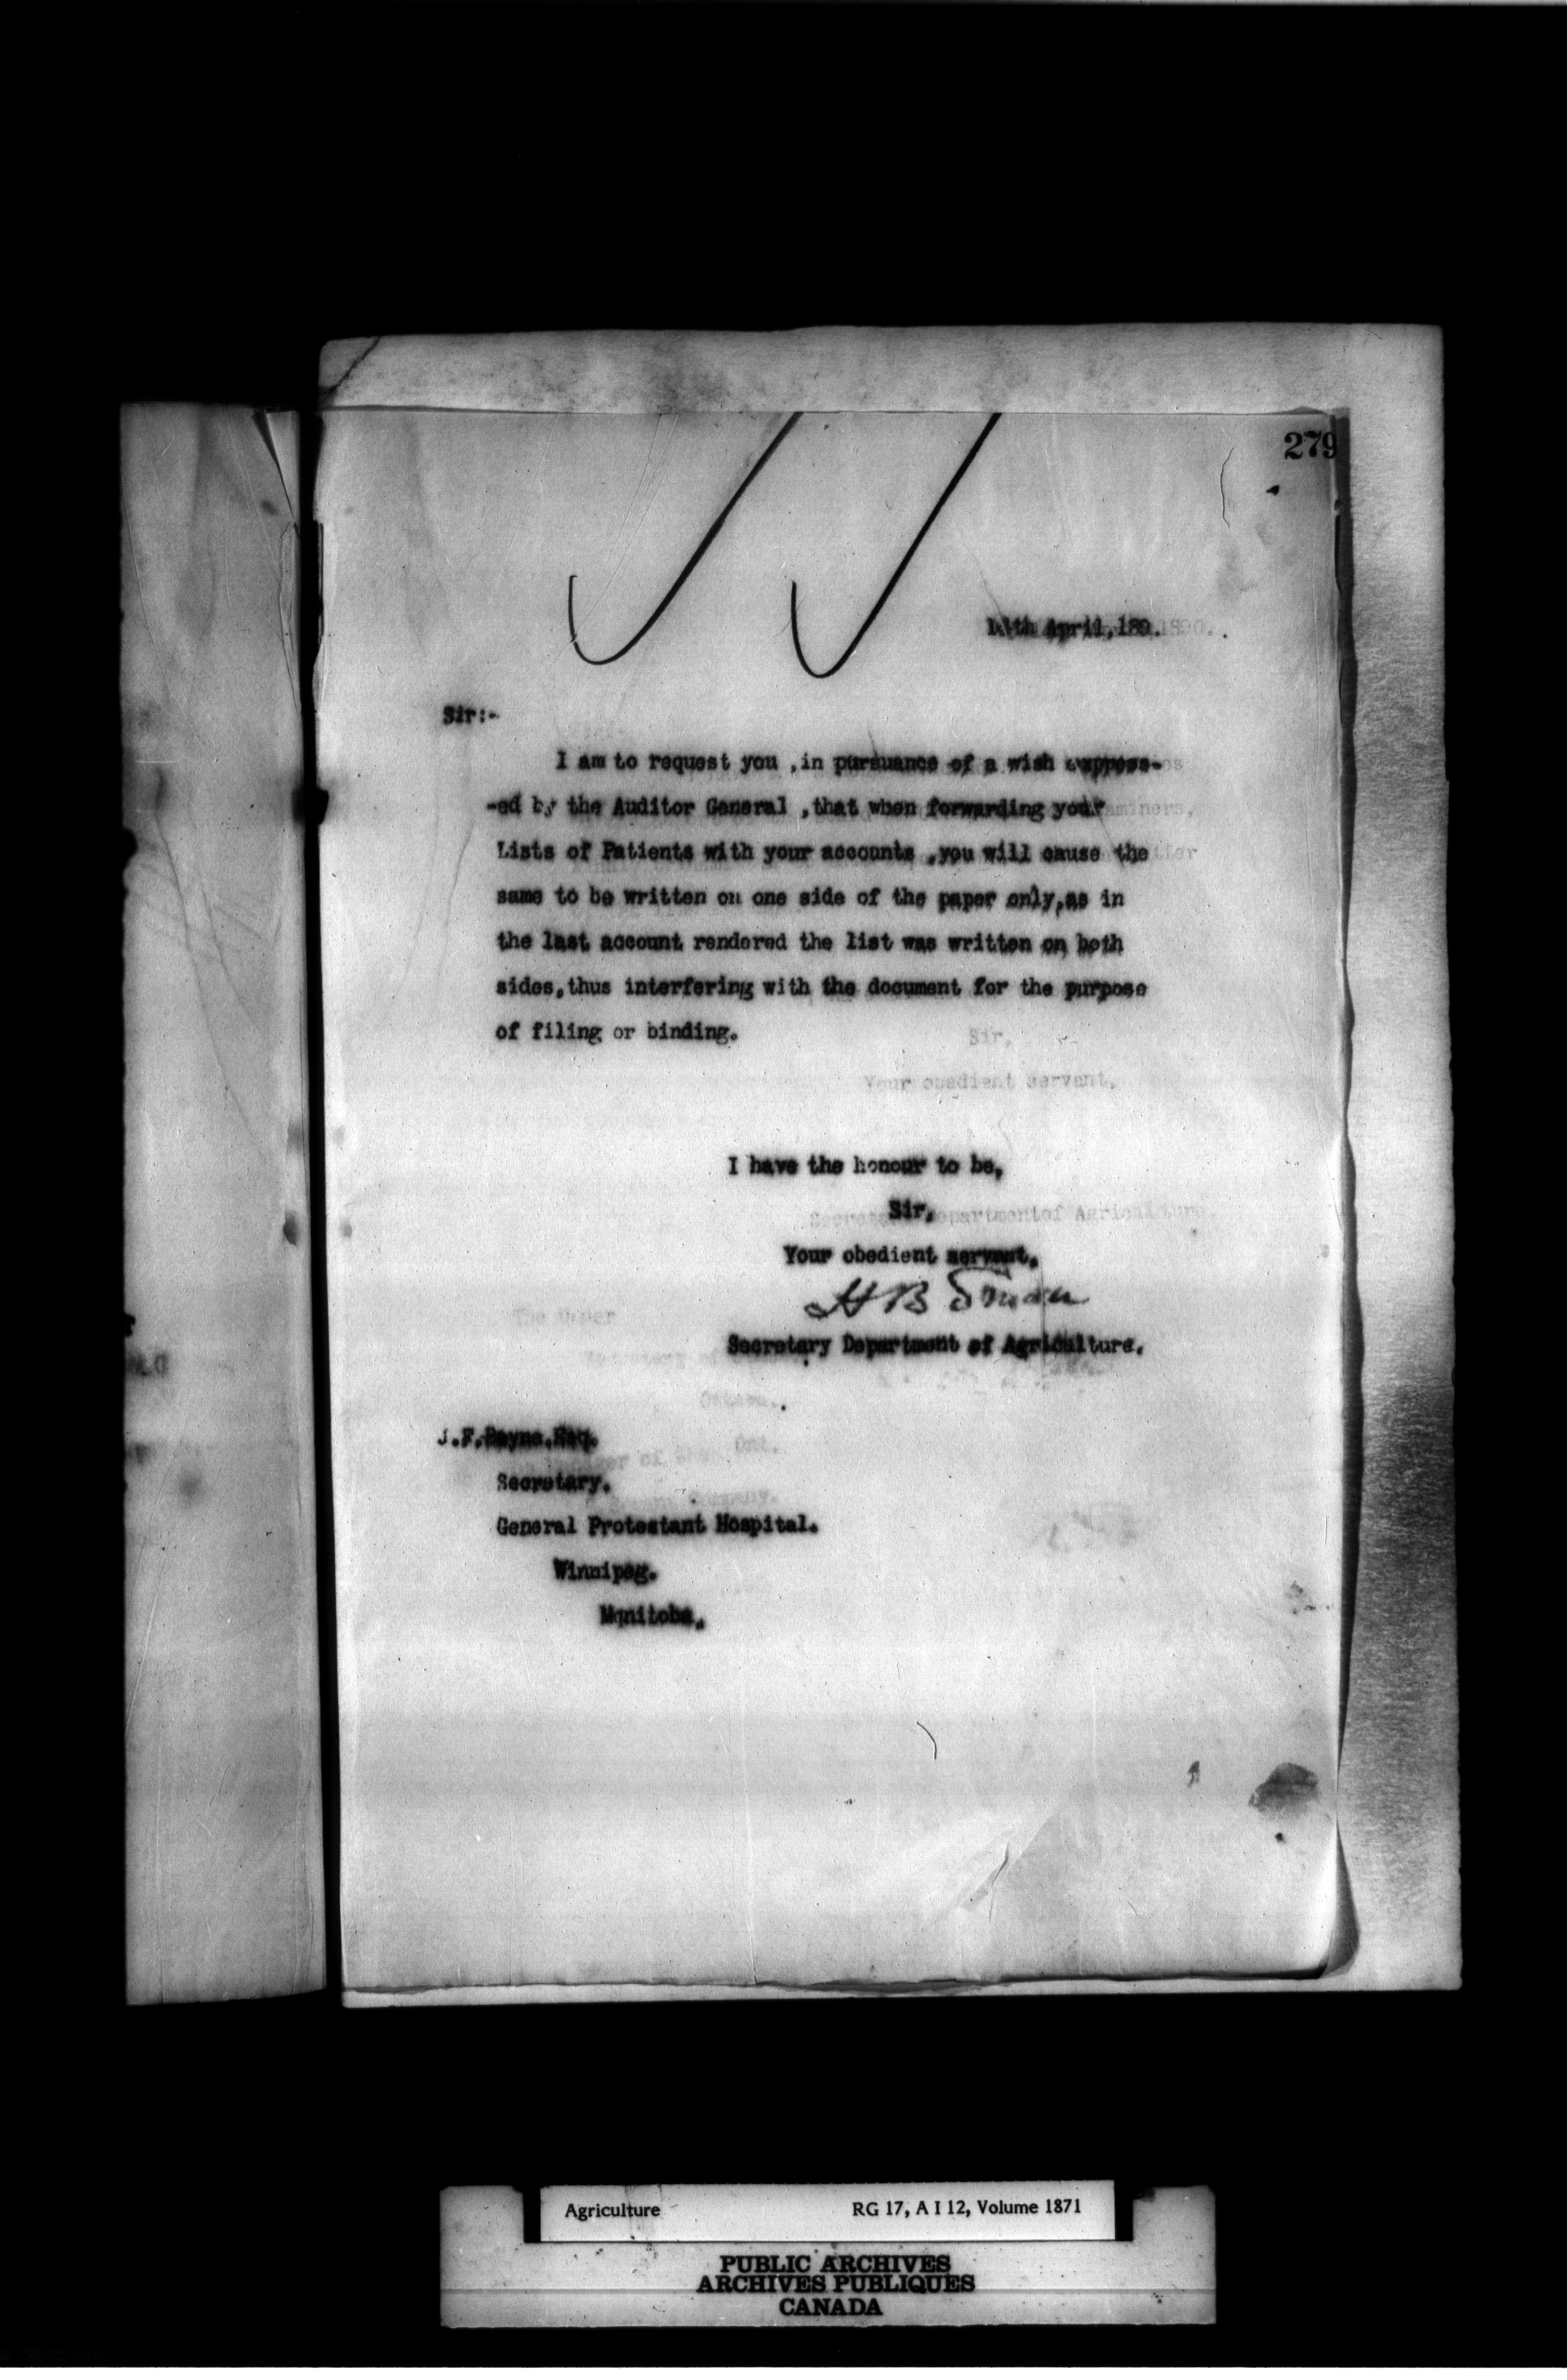 279
April, 189.
Sir:-
I am to request you ,in pursuance of a wish express-
-ed by the Auditor General ,that when forwarding your
Lists of Patients with your accounts ,you will cause the
same to be written on one side of the paper only,as in
the last account rendered the list was written on both
sides,thus interfering with the document for the purpose
of filing or binding.
I have the honour to be,
Sir,
Your obedient servant,
H B Small
Secretary Department of Agriculture.
J.F.Payne,Esq.
Secretary.
General Protestant Hospital.
Winnipeg.
Manitoba.
Agriculture RG 17, A I 12, Volume 1871
PUBLIC ARCHIVES
ARCHIVES PUBLIQUES
CANADA